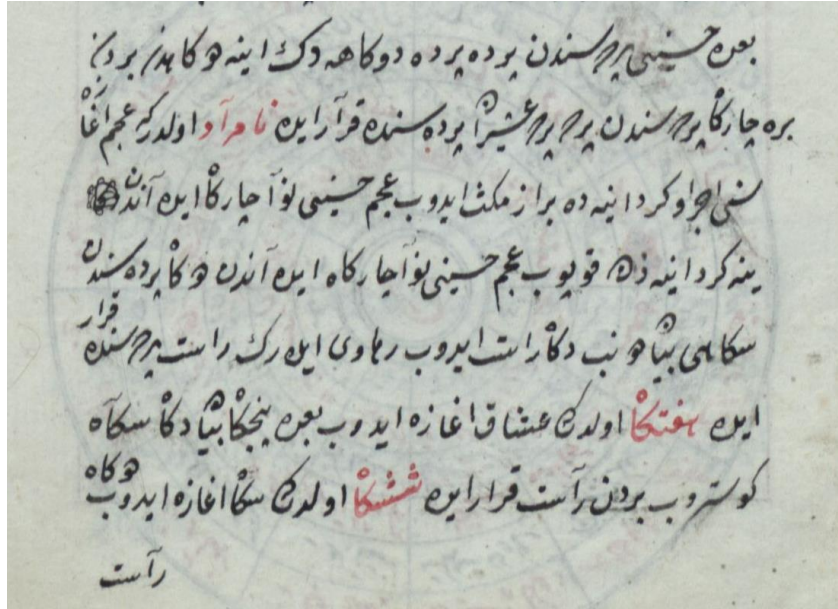 بعده حسینی پرده‌سندن پرده پرده دوکاهه دك اینه هوکاهدن بردن
بره چارکاه پرده‌سندن پرده پرده عشیران پرده سنده قرار ایده نامراد اولدرکه عجم اغا
سنی اجرا و کردانیه ده براز مکث ایدوب عجم حسینی نوا چارکاه ایده آندن
ینه کردانیه ده قویوب عجم حسینی نوا چارکاه ایده آندن هوکاه پرده سندن
سکاهی دکاه راست ایدوب رهاوی ایله رك راست پرده سنده قرار
ایده هفتکاه اولدرکه عشاق اغازه ایدوب بعده پنجکاه دکاه سکاه
کوستروب بردن راست قرار ایده ششکاه اولدرکه سکاه اغازه ایدوب هوکاه
راست